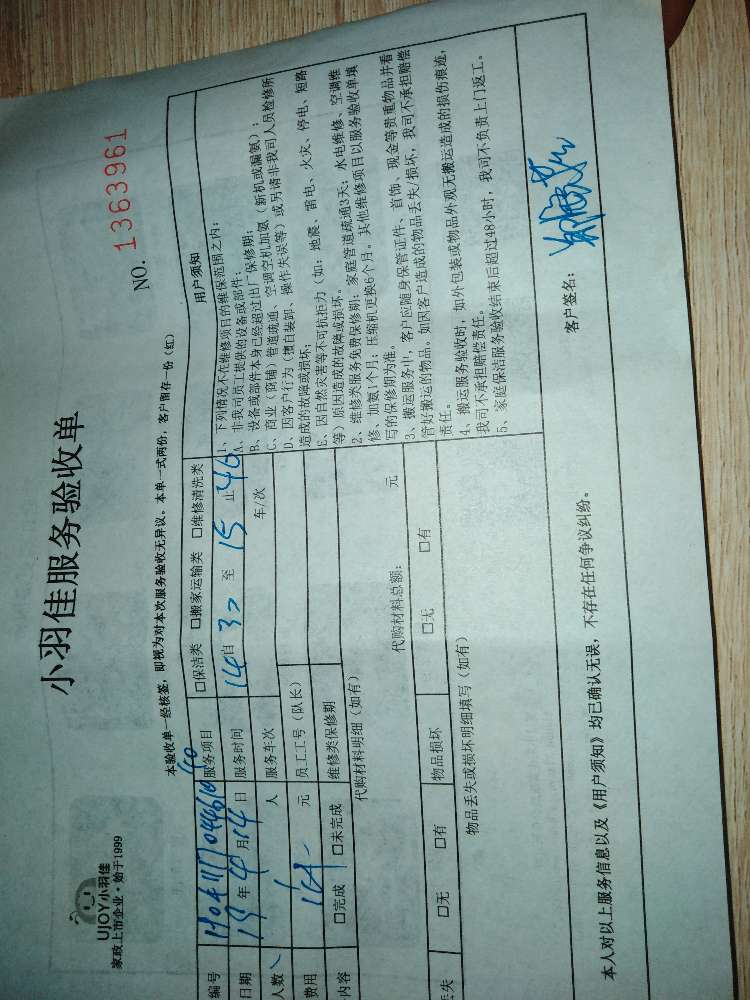 UJOY小羽佳
家政上市企业·始于1999
小羽佳服务验收单
NO. 1363961
本验收单一经核签，即视为对本次服务验收无异议。本单一式两份，客户留存一份（红）
编号
服务项目 □保洁类 □搬家运输类 □维修清洗类
日期 19 年 4 月 14 日 服务时间 14 自 30 至 15 止 46
人数 人 服务车次 车/次
费用 元 员工工号（队长）
内容 □完成 □未完成 维修类保修期
代购材料明细（如有）
代购材料总额： 元
丢失 □无 □有 物品损坏 □无 □有
物品丢失或损坏明细填写（如有）
用户须知
1、下列情况不在维修项目的维保范围之内：
A、非我司员工提供的设备或部件；
B、设备或部件本身已经超过出厂保修期；
C、商业（商铺）管道疏通、空调空机加氨（新机或漏氨）；
D、因客户行为（擅自装卸、操作失误等）或另请非我司人员检修所
造成的故障或损坏；
E、因自然灾害等不可抗拒力（如：地震、雷电、火灾、停电、短路
等）原因造成的故障或损坏。
2、维修类服务免费保修期：家庭管道疏通3天；水电维修、空调维
修、加氨1个月；压缩机更换6个月。其他维修项目以服务验收单填
写的保修期为准。
3、搬运服务中，客户应随身保管证件、首饰、现金等贵重物品并看
管好搬运的物品。如因客户造成的物品丢失/损坏，我司不承担赔偿
责任。
4、搬运服务验收时，如外包装或物品外观无搬运造成的损伤痕迹，
我司不承担赔偿责任。
5、家庭保洁服务验收结束后超过48小时，我司不负责上门返工。
本人对以上服务信息以及《用户须知》均已确认无误，不存在任何争议纠纷。
客户签名：